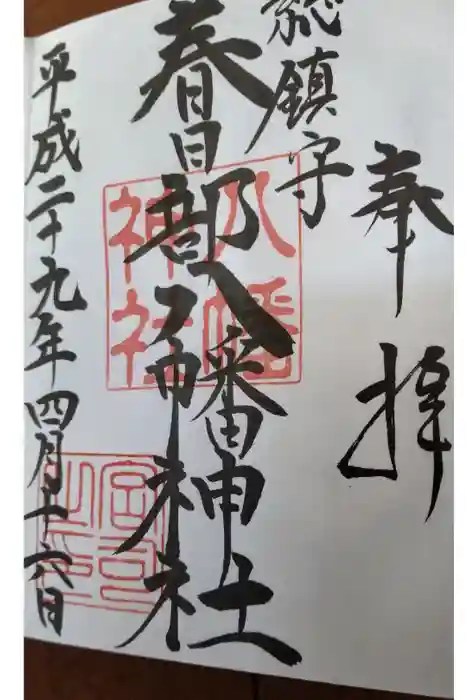 奉拝
総鎮守
春日部八幡神社
八幡
神社
平成二十九年四月十六日
宮司
之印